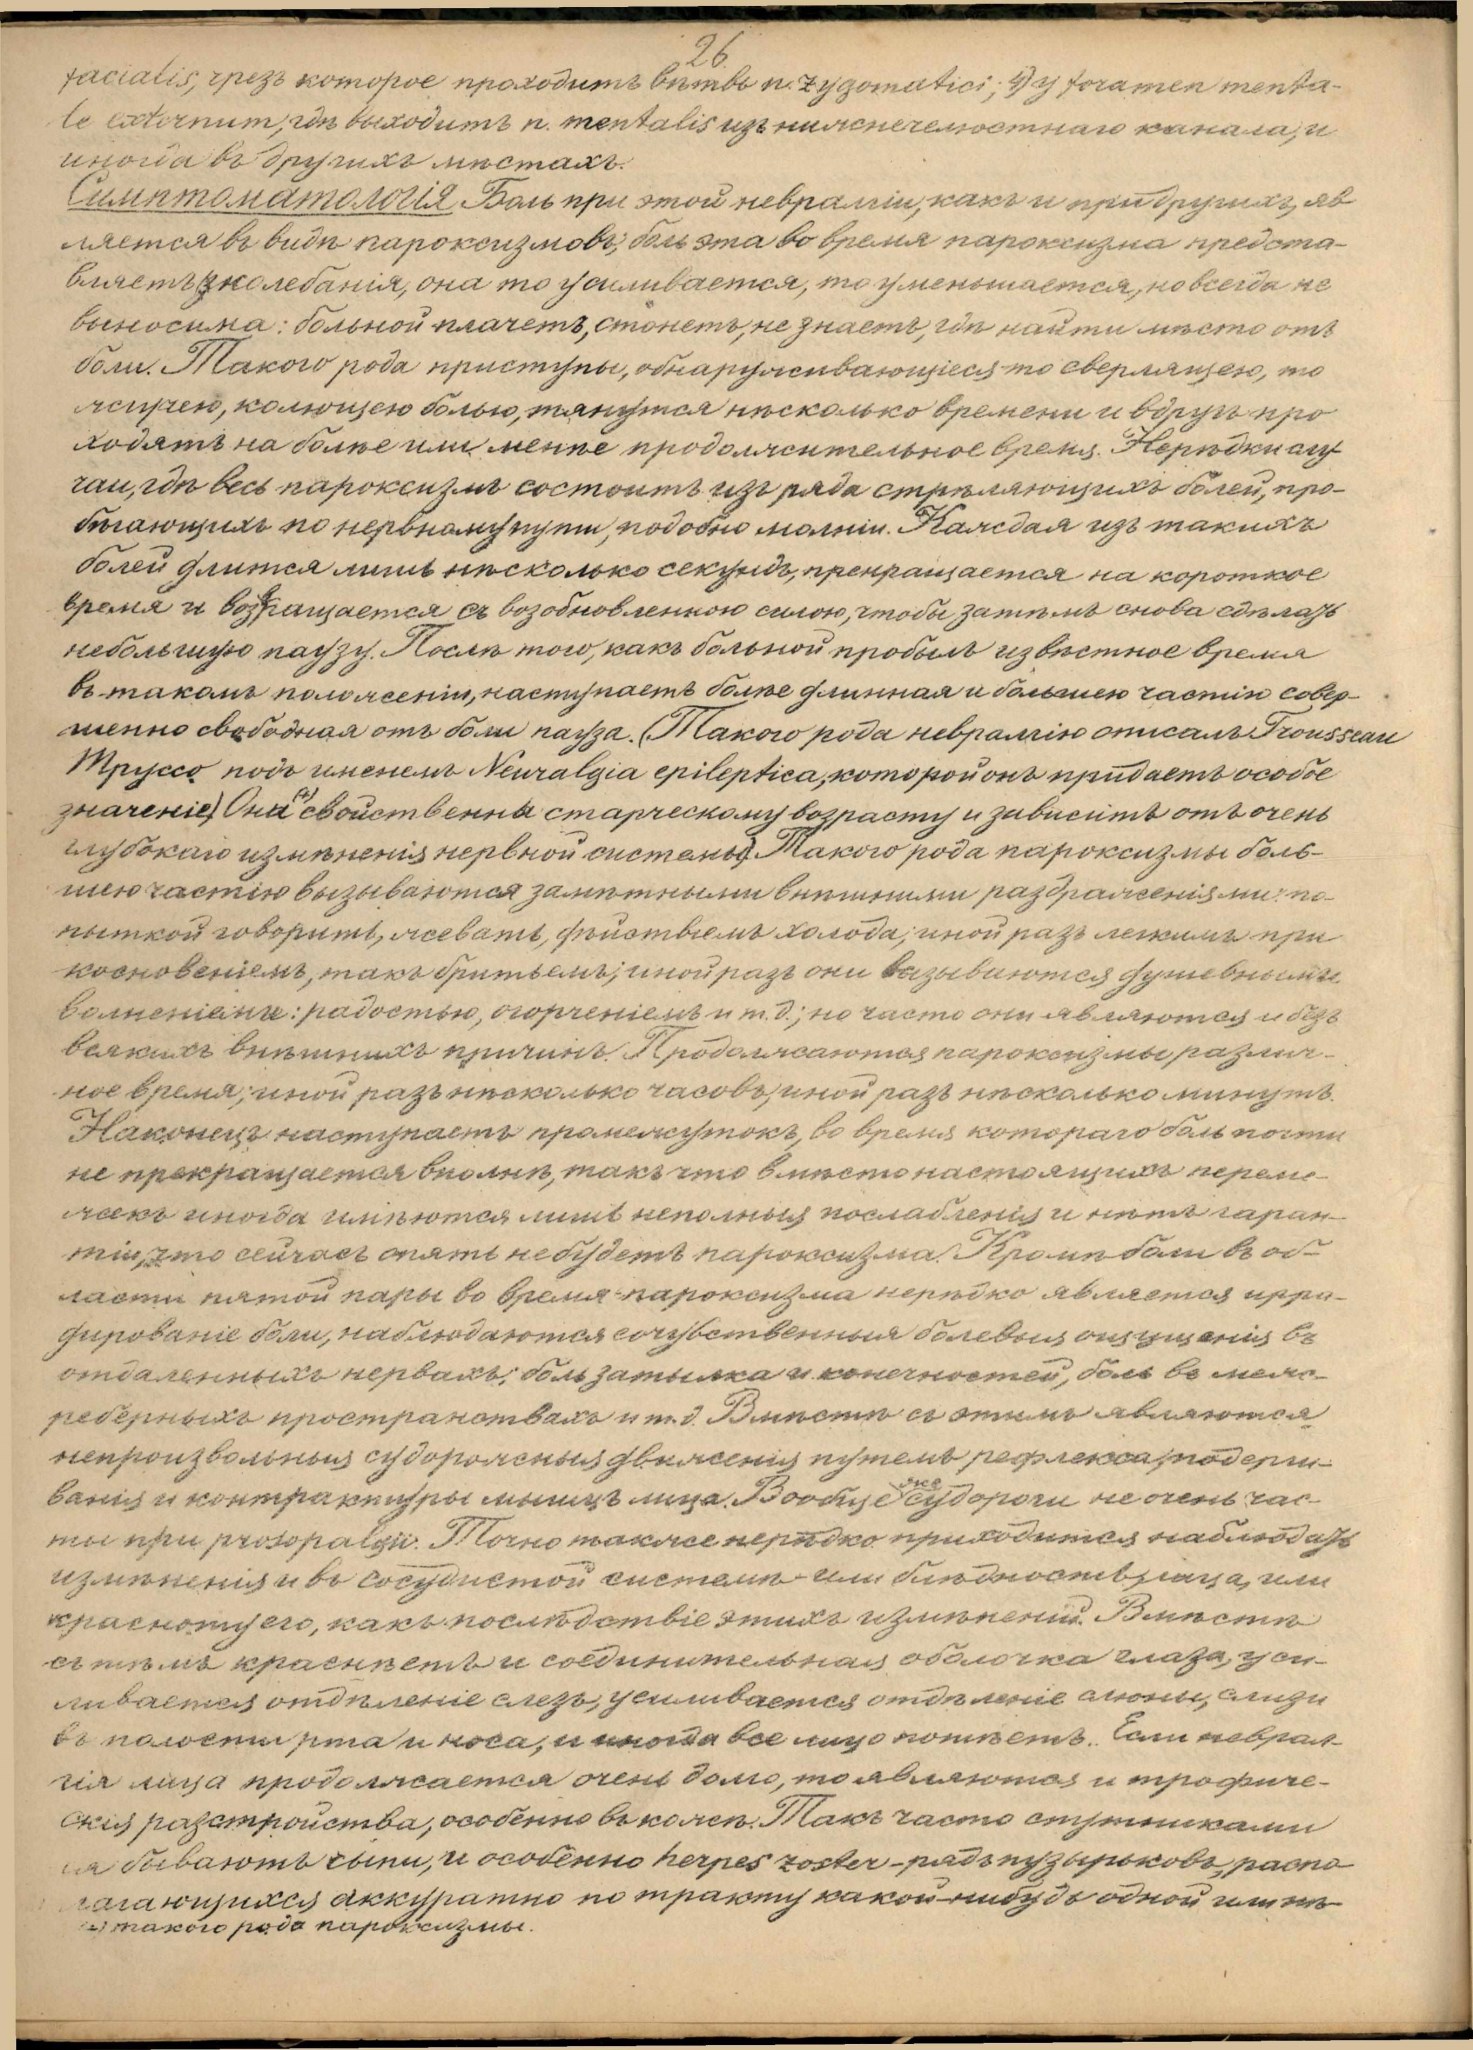 26.
facialis, чрезъ которое проходитъ вѣтвь n. zygomatici; 4) у foramen menta-
le externum, гдѣ выходитъ n. mentalis изъ нижнечелюстнаго канала, и
иногда въ другихъ мѣстахъ.
Симптоматологія. Боль при этой невралгіи, какъ и при другихъ, яв
ляется въ видѣ пароксизмовъ; боль эта во время пароксизма предста-
вляетъ колебанія, она то усиливается, то уменьшается, но всегда не
выносима: больной плачетъ, стонетъ, не знаетъ, гдѣ найти мѣсто отъ
боли. Такого рода приступы, обнаруживающіеся то сверлящею, то
жгучею, колющею болью, тянутся нѣсколько времени и вдругъ про
ходятъ на болѣе или менѣе продолжительное время. Нерѣдки слу
чаи, гдѣ весь пароксизмъ состоитъ изъ ряда стрѣляющихъ болей, про-
бѣгающихъ по нервному пути, подобно молніи. Каждая изъ такихъ
болей длится лишь нѣсколько секундъ, прекращается на короткое
время и возвращается съ возобновленною силою, чтобы затѣмъ снова сдѣлать
небольшую паузу. Послѣ того, какъ больной пробылъ извѣстное время
въ такомъ положеніи, наступаетъ болѣе длинная и большею частію совер-
шенно свободная отъ боли пауза. (Такого рода невралгію описалъ Trousseau
Труссо подъ именемъ Neuralgia epileptica, которой онъ придаетъ особое
значеніе) Она (+) свойственна старческому возрасту и зависитъ отъ очень
глубокаго измѣненія нервной системы). Такого рода пароксизмы боль-
шею частію вызываются замѣтными внѣшними раздраженіями: по-
пыткой говорить, жевать, дѣйствіемъ холода; иной разъ легкимъ при
косновеніемъ, такъ бритьемъ; иной разъ они вызываются душевными
волненіями: радостью, огорченіемъ и т.д.; но часто они являются и безъ
всякихъ внѣшнихъ причинъ. Продолжаются пароксизмы различ-
ное время; иной разъ нѣсколько часовъ, иной разъ нѣсколько минутъ.
Наконецъ наступаетъ промежутокъ, во время котораго боль почти
не прекращается вполнѣ, такъ что вмѣсто настоящихъ переме-
жекъ иногда имѣются лишь неполныя послабленія и нѣтъ гаран-
тіи, что сейчасъ опять не будетъ пароксизма. Кромѣ боли въ об-
ласти пятой пары во время пароксизма нерѣдко является ирра-
дированіе боли, наблюдаются сочувственныя болевыя ощущенія въ
отдаленныхъ нервахъ; боль затылка и конечностей, боль въ меж-
реберныхъ пространствахъ и т.д. Вмѣстѣ съ этимъ являются
непроизвольныя судорожныя движенія путемъ рефлекса, подерги-
ванія и контрактуры мышцъ лица. Вообще же судороги не очень час-
ты при prosopalgii. Точно также нерѣдко приходится наблюдать
измѣненія и въ сосудистой системѣ - или блѣдность лица, или
красноту его, какъ послѣдствіе этихъ измѣненій. Вмѣстѣ
съ тѣмъ краснѣетъ и соединительная оболочка глаза, уси-
ливается отдѣленіе слезъ, усиливается отдѣленіе слюны, слизи
въ полости рта и носа, и иногда все лицо потѣетъ. Если неврал-
гія лица продолжается очень долго, то являются и трофиче-
скія разстройства, особенно въ кожѣ. Такъ часто спутниками
ея бываютъ сыпи, и особенно herpes zoster - рядъ пузырьковъ, распо
лагающихся аккуратно по тракту какой-нибудь одной или нѣ-
(+) такого рода пароксизмы.